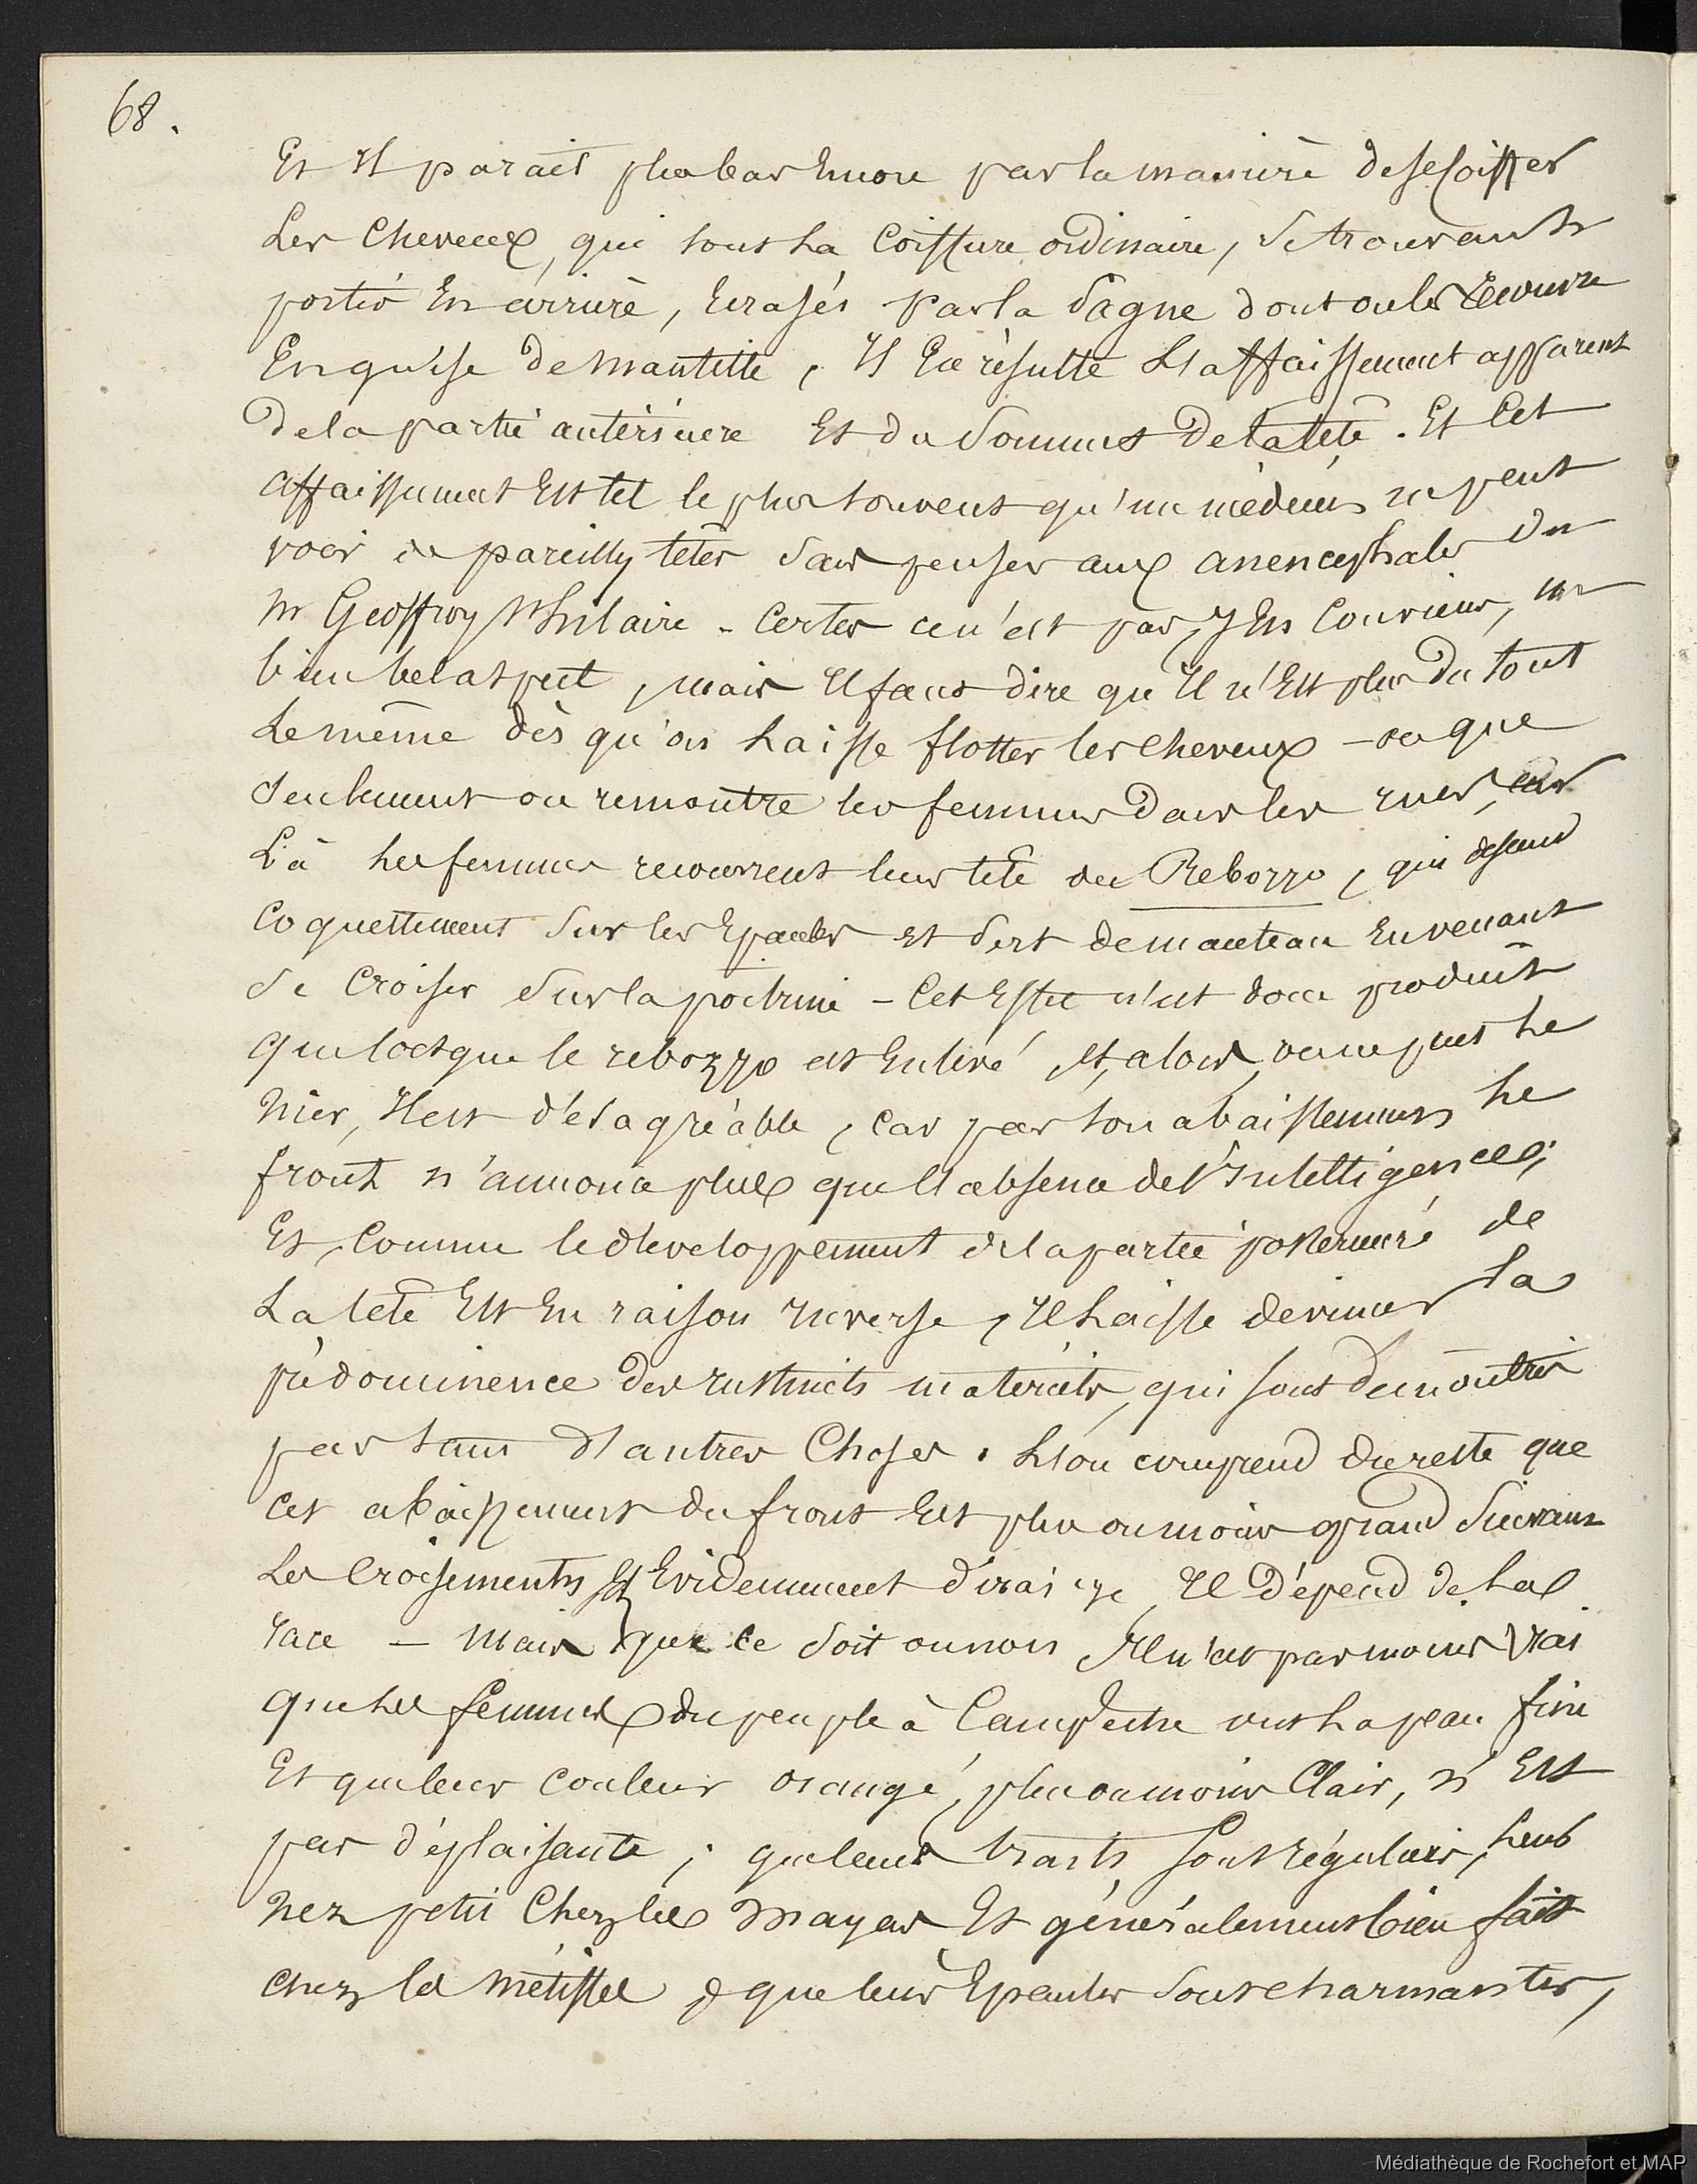 68.
Et Il parait plus bas Encore par la manière de se Coiffer
Les Cheveux, qui sous La Coiffure ordinaire, se trouvants
portés En arrière, Ecrasés par la Pagne dont on les recouvre
En guise de Mantille, Il En résulte L'affaissement apparent
de la partie antérieure Et du Sommet de la tête. Et Cet
affaissement Est tel le plus souvent qu'un médecin ne peut
voir de pareilles têtes sans penser aux anencephales de
Mr Geoffroy St hilaire - Certes ce n'est pas, J'En Conviens, un
bien bel aspect, mais Il faut dire qu'Il n'Est plus du tout
Le même dès qu'on Laisse flotter les cheveux - ou que
seulement on rencontre les femmes dans les rues, car
Là Les femmes recouvrent leur tête du Rebozzo, qui descend
Coquettement sur les Epaules et sert de manteau En venant
se Croiser sur la poitrine - Cet Effet n'est donc produit
que lorsque le rebozzo est Enlevé et, alors, on ne peut Le
Nier, Il est désagréable, car par son abaissement Le
front n'annonce plus que l'absence de l'Intelligence;
Et, Comme le développement de la partie postérieure de
La tête Est En raison Inverse, Il Laisse deviner La
prédominence des Instincts matériels, qui sont demontrés
par tant d'autres Choses. L'on comprend du reste que
cet abaissement du front Est plus ou moins grand suivant
Les Croisements et Evidemment Il dépend de La
race - Mais que ce soit ou non Il n'est pas moins vrai
que Les femmes du peuple à Campêche ont La peau fine
Et que leur couleur orangé, plus ou moins Clair, n'Est
pas déplaisante; que leurs traits sont réguliers, Leur
Nez petit Chez les Mayas Et généralement bien fait
chez les métisses, & que leurs Epaules sont charmantes,
Médiathèque de Rochefort et MAP